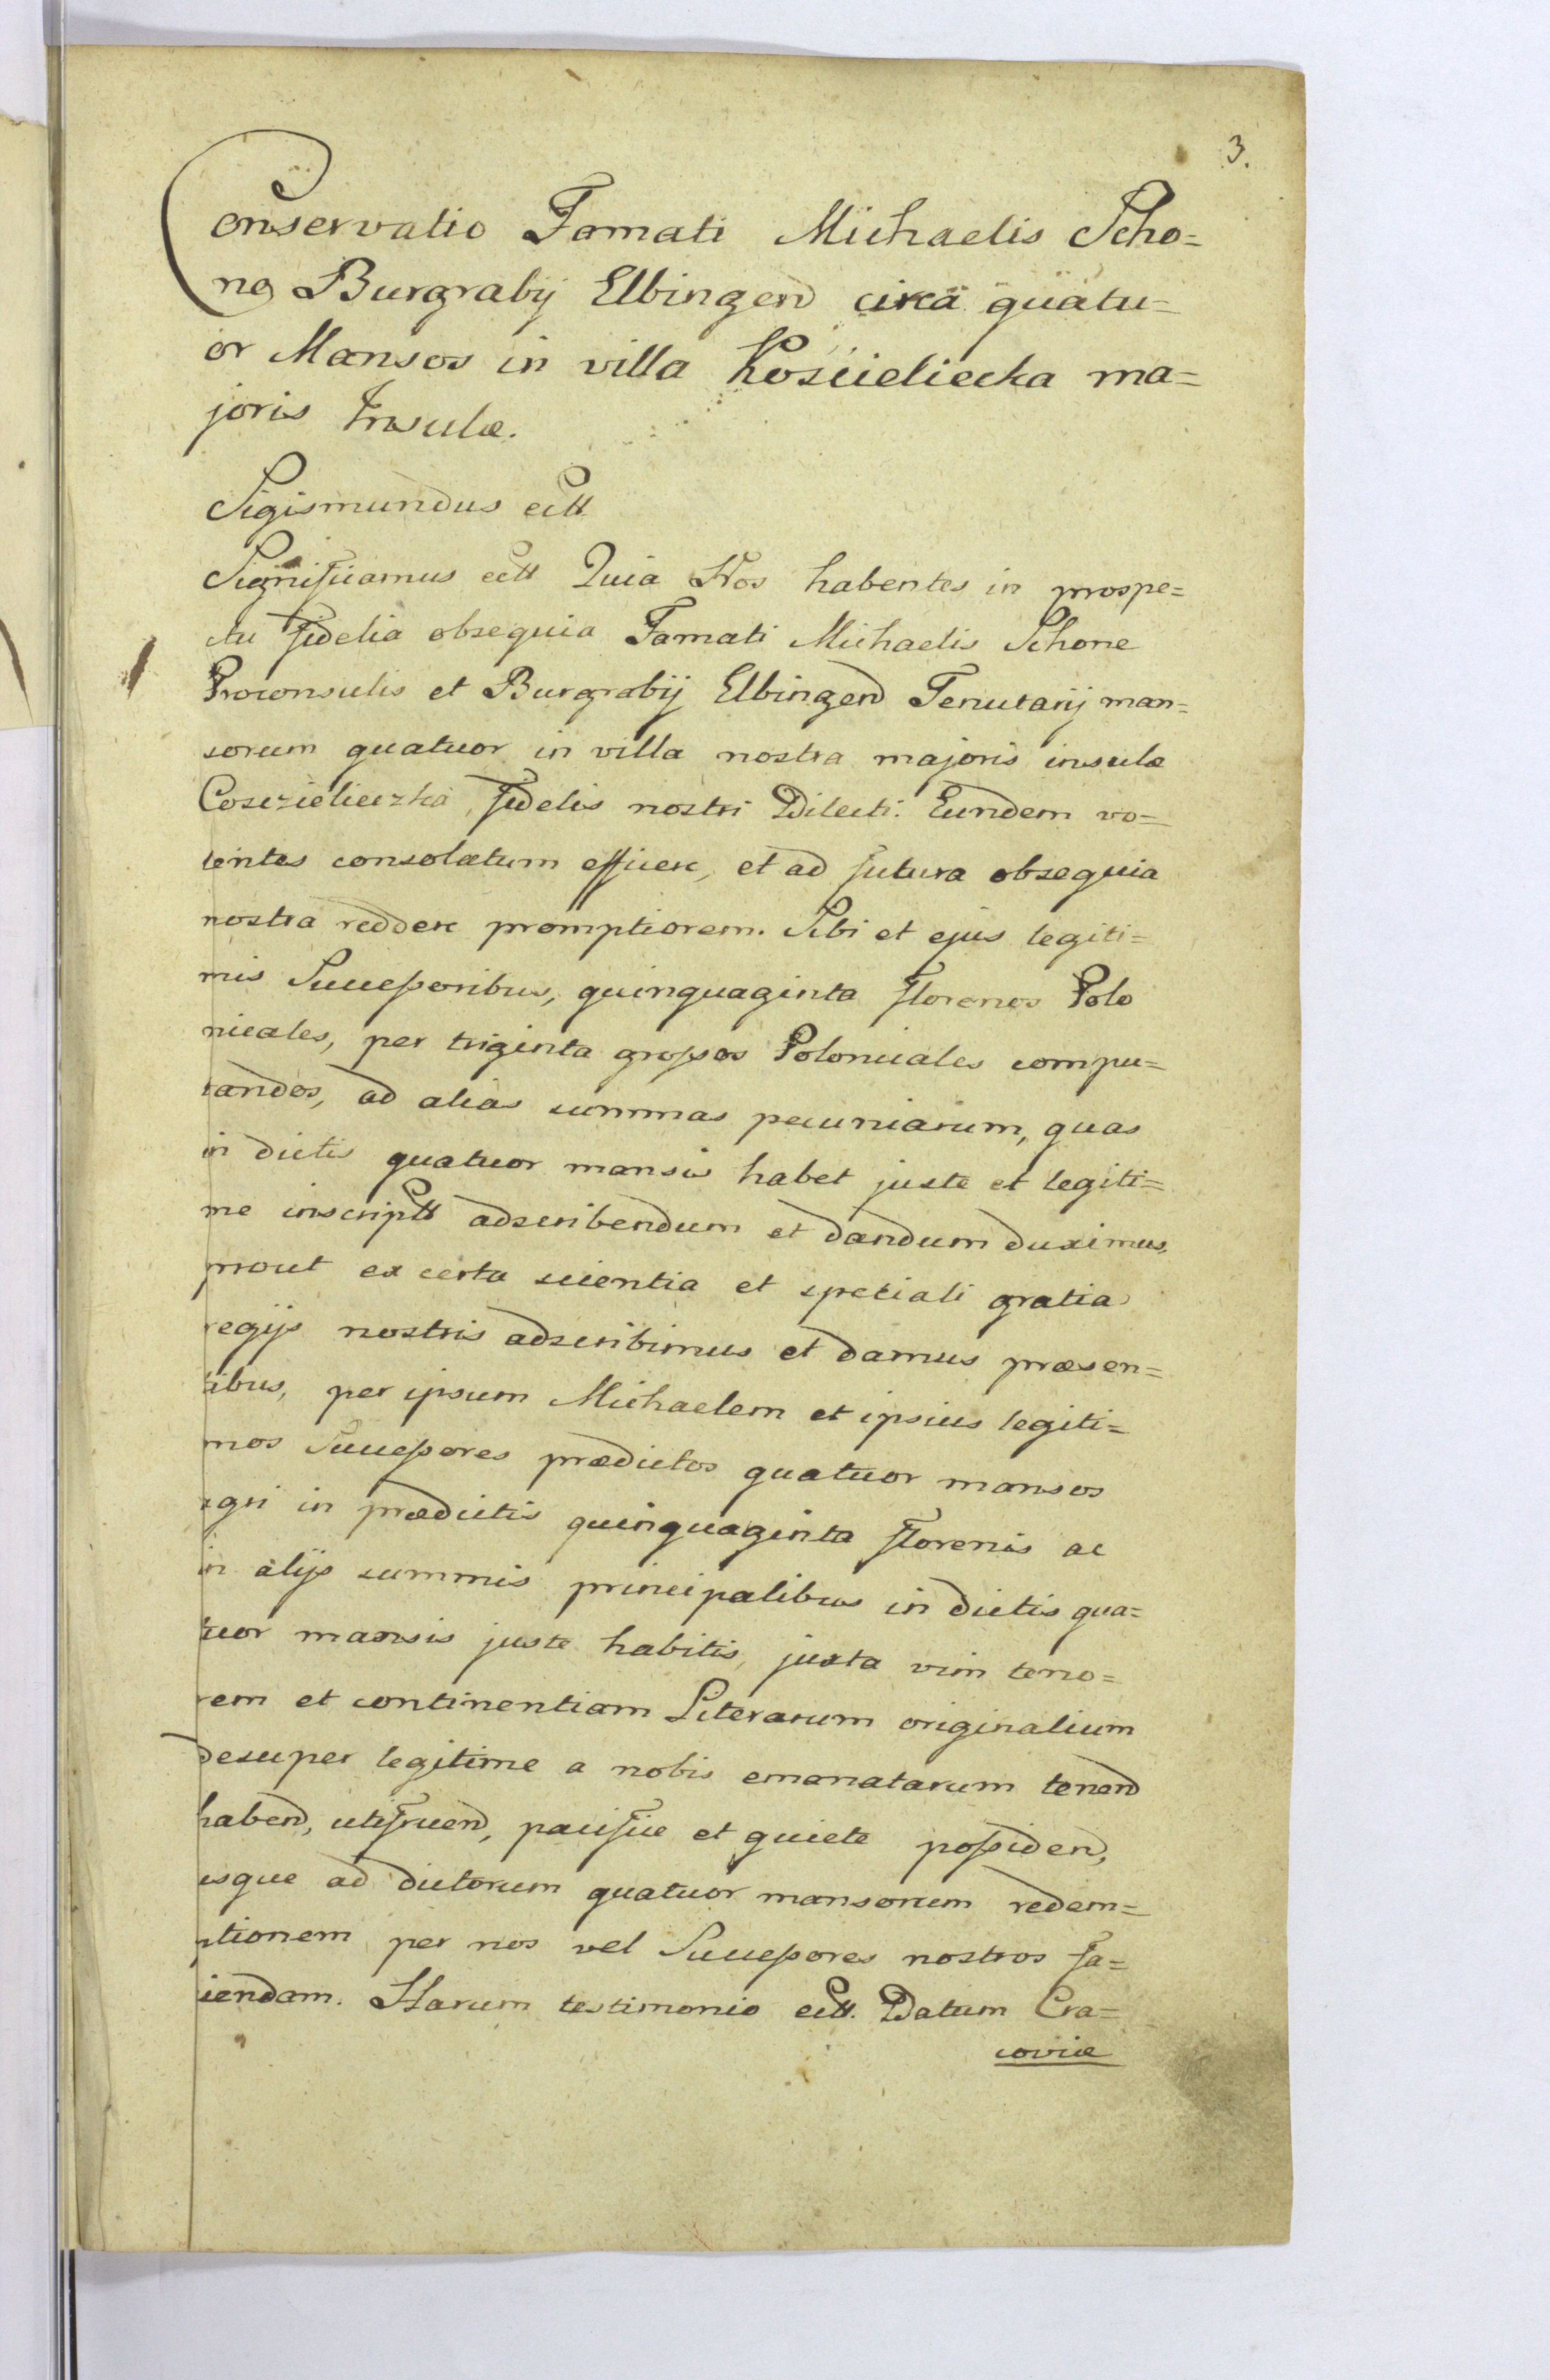 3.
Conservatio Famati Michaelis Scho=
ne Burgrabij Elbingen circa quatu=
or Mansos in villa Koscieliecka ma=
joris Insulæ.
Sigismundus ectt
Significamus ectt Quia Nos habentes in prospe=
ctu fidelia obsequia Famati Michaelis Schone
Proconsulis et Burgrabij Elbingen Tenutarij man=
sorum quatuor in villa nostra majoris insulæ
Cosczielieczka, fidelis nostri Dilecti. Eundem vo=
lentes consolatum efficere, et ad futura obsequia
nostra reddere promptiorem. Sibi et ejus legiti=
mis Successoribus, quinquaginta florenos Polo
nicales, per triginta grossos Polonicales compu=
tandos, ad alias summas pecuniarum, quas
in dictis quatuor mansis habet juste et legiti=
me inscriptt adscribendum et dandum duximus,
prout ex certa scientia et spetiali gratia
regijs nostris adscribimus et damus præsen=
tibus, per ipsum Michaelem et ipsius legiti=
mos Successores prædictos quatuor mansos
agri in prædictis quinquaginta florenis ac
in alijs summis principalibus in dictis qua=
tuor mansis juste habitis, juxta vim teno=
rem et continentiam Literarum originalium
desuper legitime a nobis emanatarum tenend
habend, utifruend, pacifice et quiete possidend,
usque ad dictorum quatuor mansorum redem=
ptionem per nos vel Successores nostros fa=
ciendam. Harum testimonio ectt. Datum Cra=
coviæ